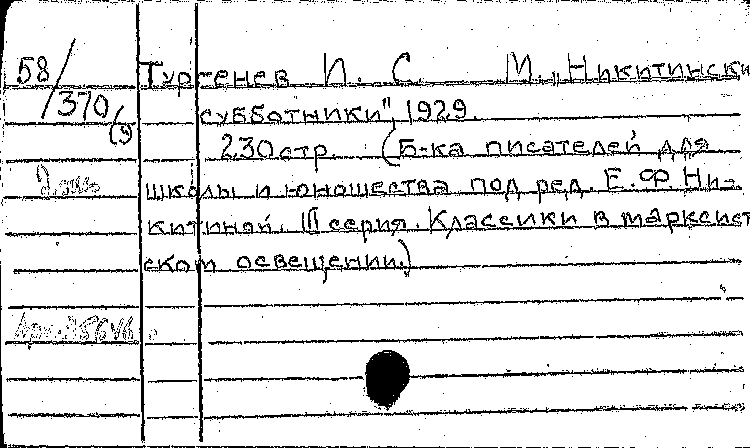 58/370
Тургенев И. С. М., „Никитински
субботники", 1929.
230 стр. (Б-ка писателей для
школы и юношества под ред. Е. Ф. Ни-
китиной. III серия. Классики в марксист
ском освещении.)